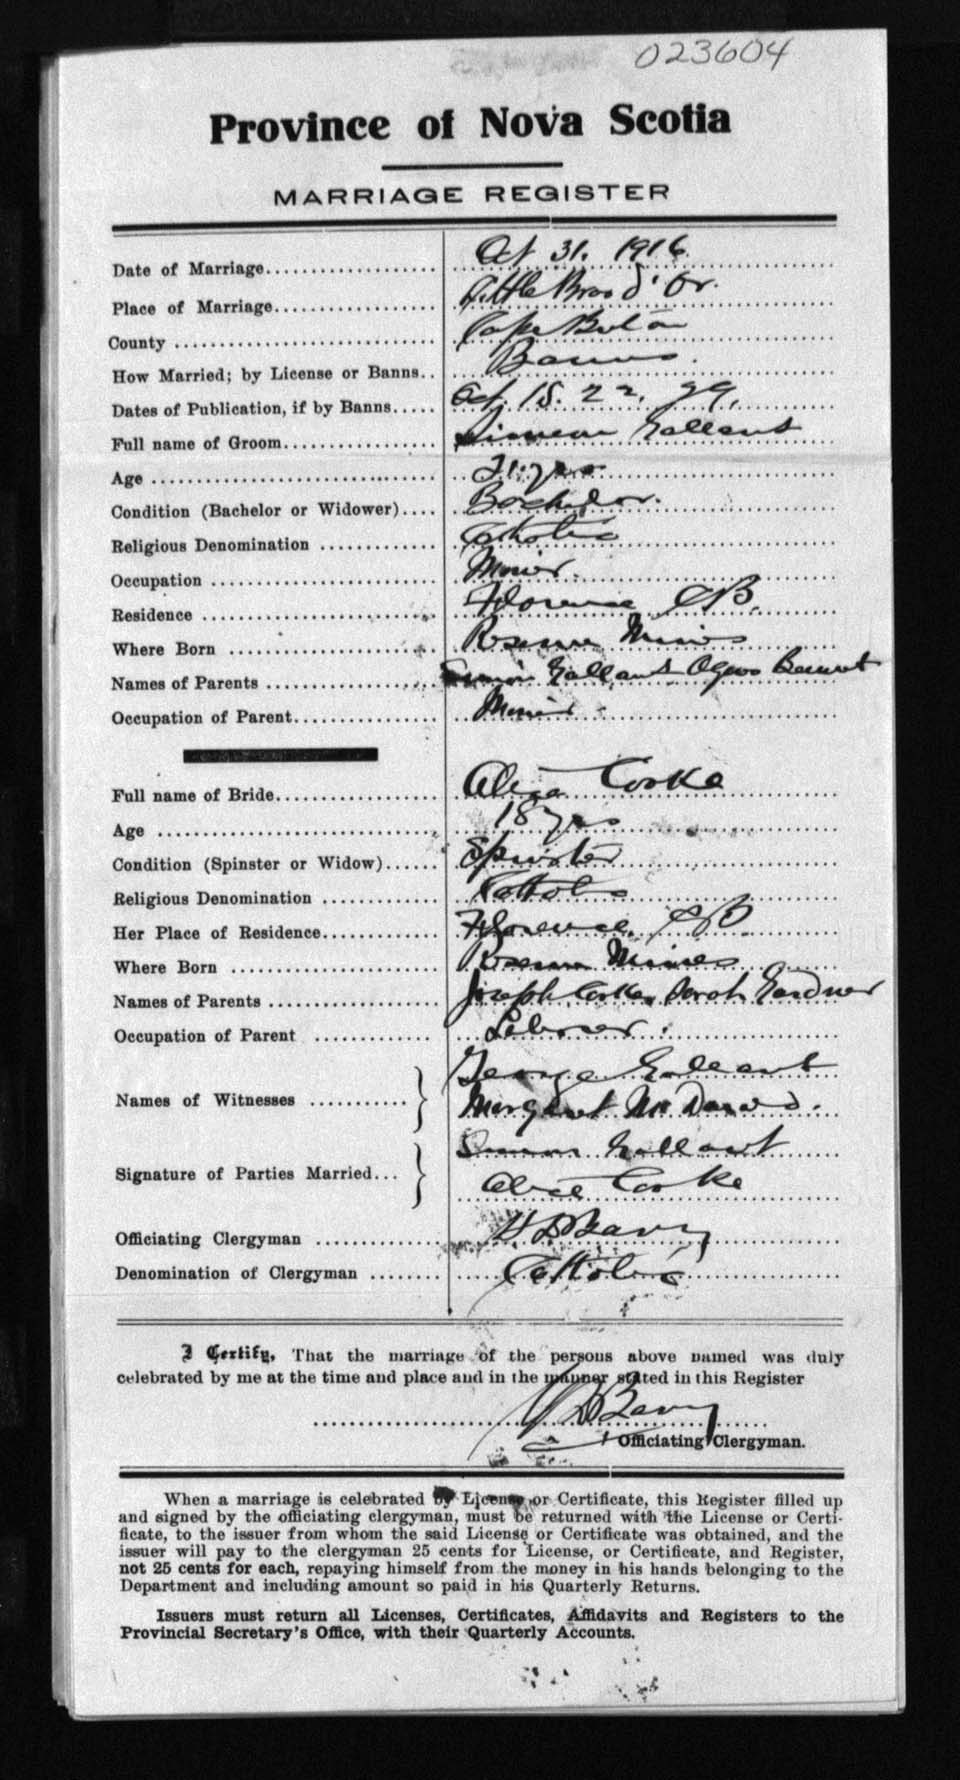 023604
Province of Nova Scotia
MARRIAGE REGISTER
Date of Marriage Oct 31. 1916
Place of Marriage Little Bras d'Or.
County Cape Breton
How Married; by License or Banns.. Banns.
Dates of Publication, if by Banns Oct. 15. 22. 29.
Full name of Groom Simeon Gallant
Age 21 yrs
Condition (Bachelor or Widower) Bachelor.
Religious Denomination Catholic
Occupation Miner.
Residence Florence CB.
Where Born Reserve Mines
Names of Parents Simon Gallant
Occupation of Parent Miner
Full name of Bride Alice Corke
Age 18 yrs
Condition (Spinster or Widow) Spinster
Religious Denomination Catholic
Her Place of Residence Florence. CB.
Where Born Reserve Mines
Names of Parents Joseph Corke, Sarah Gardner
Occupation of Parent Laborer.
George Gallant
Names of Witnesses
Margaret
Gallant
Signature of Parties Married...
Alice Corke
Officiating Clergyman
Denomination of Clergyman Catholic
I Certify, That the marriage of the persons above named was duly
celebrated by me at the time and place and in the manner stated in this Register
Officiating Clergyman.
When a marriage is celebrated by License or Certificate, this Register filled up
and signed by the officiating clergyman, must be returned with the License or Certi-
ficate, to the issuer from whom the said License or Certificate was obtained, and the
issuer will pay to the clergyman 25 cents for License, or Certificate, and Register,
not 25 cents for each, repaying himself from the money in his hands belonging to the
Department and including amount so paid in his Quarterly Returns.
Issuers must return all Licenses, Certificates, Affidavits and Registers to the
Provincial Secretary's Office, with their Quarterly Accounts.